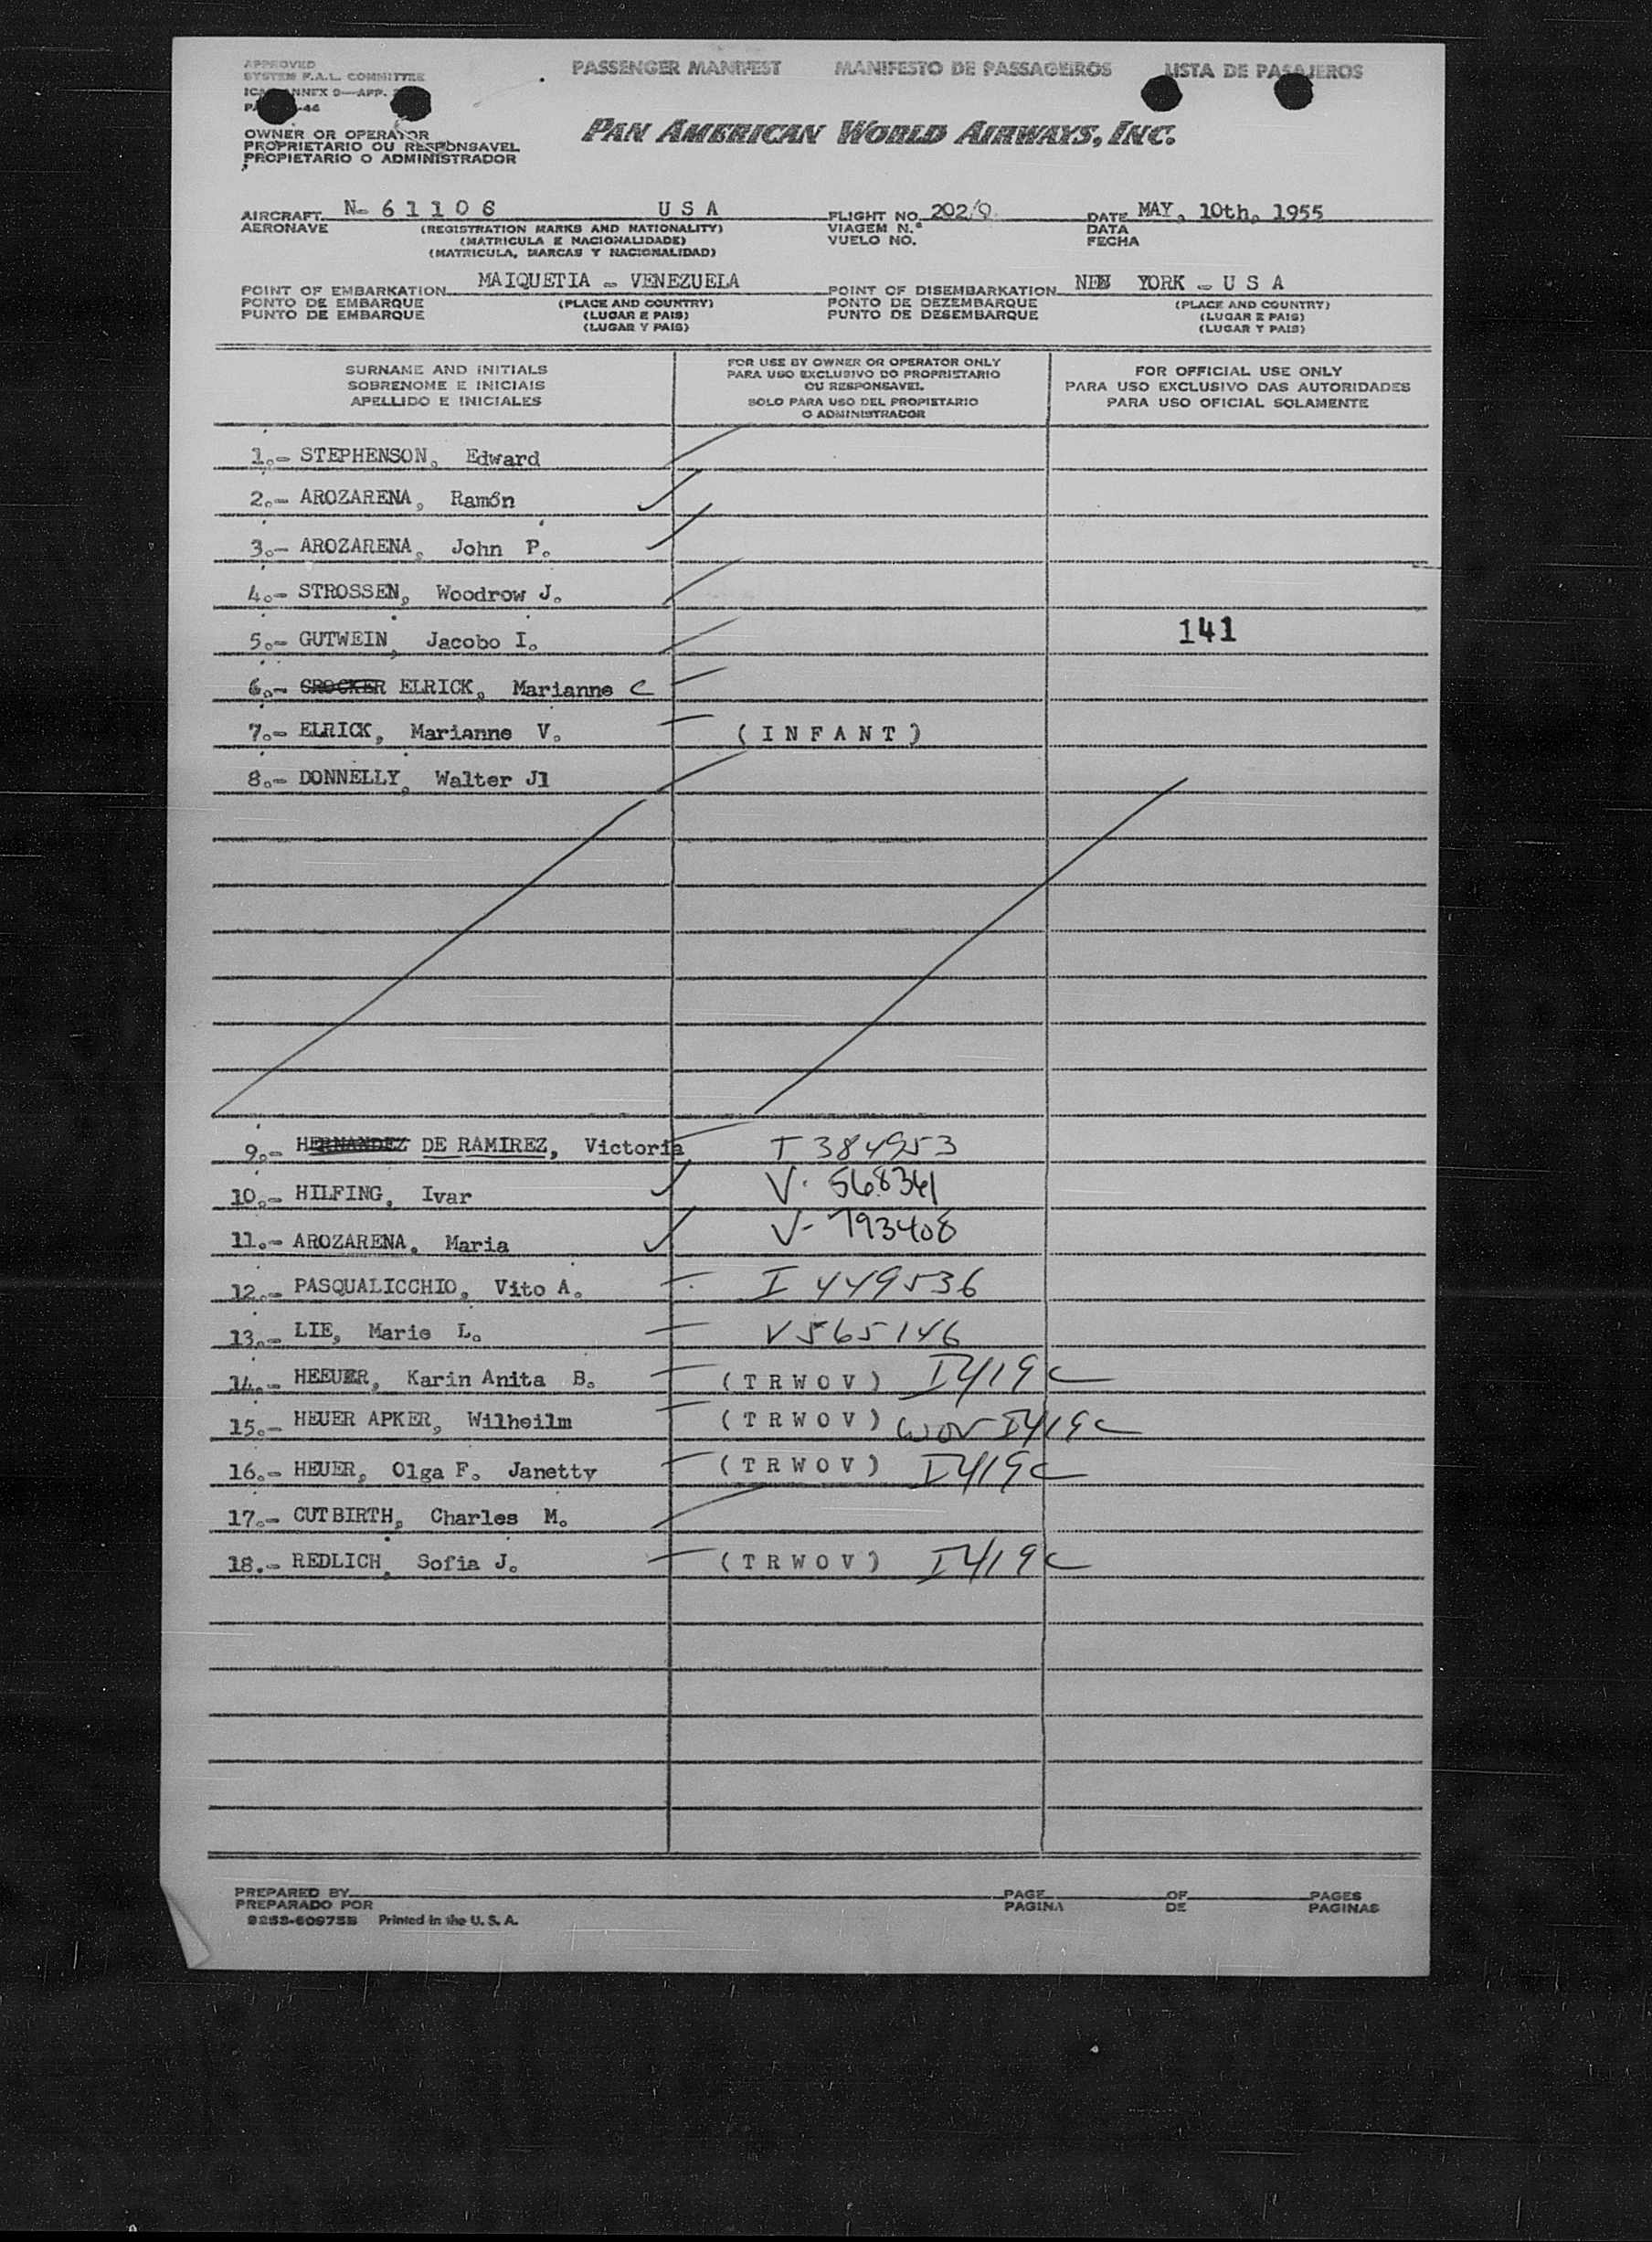 APPROVED
SYSTEM F.A.L. COMMITTEE
ANNEX 9—APP.
-44
PASSENGER MANIFEST MANIFESTO DE PASSAGEIROS LISTA DE PASAJEROS
OWNER OR OPERATOR
PROPRIETARIO OU RESPONSAVEL
PROPIETARIO O ADMINISTRADOR
PAN AMERICAN WORLD AIRWAYS, INC.
AIRCRAFT N- 6 1 1 0 6 U S A FLIGHT NO. 202/9 DATE MAY, 10th, 1955
AERONAVE (REGISTRATION MARKS AND NATIONALITY) VIAGEM N.° DATA
(MATRICULA E NACIONALIDADE) VUELO NO. FECHA
(MATRICULA, MARCAS Y NACIONALIDAD)
POINT OF EMBARKATION MAIQUETIA - VENEZUELA POINT OF DISEMBARKATION NEW YORK - U S A
PONTO DE EMBARQUE (PLACE AND COUNTRY) PONTO DE DEZEMBARQUE (PLACE AND COUNTRY)
PUNTO DE EMBARQUE (LUGAR E PAIS) PUNTO DE DESEMBARQUE (LUGAR E PAIS)
(LUGAR Y PAIS) (LUGAR Y PAIS)
SURNAME AND INITIALS
SOBRENOME E INICIAIS
APELLIDO E INICIALES
FOR USE BY OWNER OR OPERATOR ONLY
PARA USO EXCLUSIVO DO PROPRIETARIO
OU RESPONSAVEL
SOLO PARA USO DEL PROPIETARIO
O ADMINISTRADOR
FOR OFFICIAL USE ONLY
PARA USO EXCLUSIVO DAS AUTORIDADES
PARA USO OFICIAL SOLAMENTE
1.- STEPHENSON, Edward
2.- AROZARENA, Ramón
3.- AROZARENA, John P.
4.- STROSSEN, Woodrow J.
5.- GUTWEIN, Jacobo I. 141
6.- CROCKER ELRICK, Marianne C
7.- ELRICK, Marianne V. ( I N F A N T )
8.- DONNELLY, Walter Jl
9.- HERNANDEZ DE RAMIREZ, Victoria T 384953
10.- HILFING, Ivar V. 568361
11.- AROZARENA, Maria V- 793408
12.- PASQUALICCHIO, Vito A. I 449536
13.- LIE, Marie L. V565146
14.- HEEUER, Karin Anita B. ( T R W O V ) I419C
15.- HEUER APKER, Wilheilm ( T R W O V ) WOV I419C
16.- HEUER, Olga F. Janetty ( T R W O V ) I419C
17.- CUTBIRTH, Charles M.
18.- REDLICH, Sofia J. ( T R W O V ) I419C
PREPARED BY PAGE OF PAGES
PREPARADO POR PAGINA DE PAGINAS
9253-60975B Printed in the U. S. A.